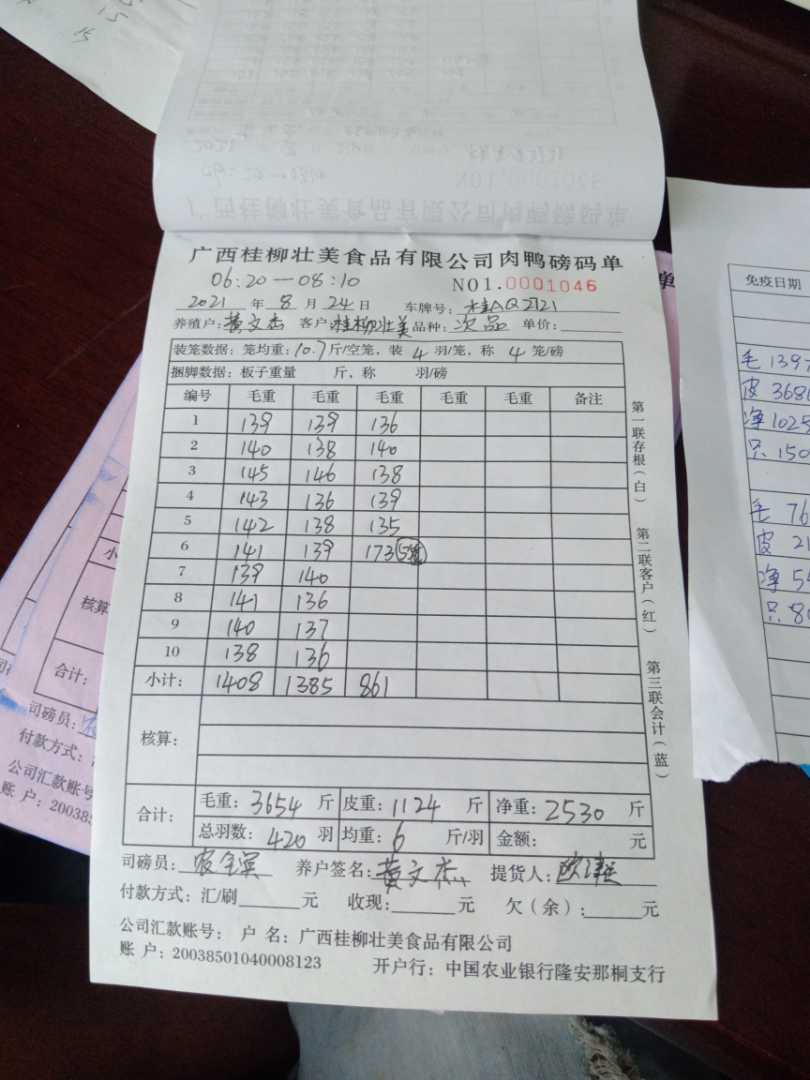 15
15
广西桂柳壮美食品有限公司肉鸭磅码单
06:20—08:10 NO1.0001046
2021 年 8 月 24 日 车牌号: 桂AQ2121
养殖户: 黄文杰 客户: 桂柳壮美 品种: 次品 单价:
装笼数据: 笼均重: 10.7 斤/空笼, 装 4 羽/笼, 称 4 笼/磅
捆脚数据: 板子重量 斤, 称 羽/磅
编号 毛重 毛重 毛重 毛重 毛重 备注
1 139 139 136
2 140 138 140
3 145 146 138
4 143 136 139
5 142 138 135
6 141 139 173
7 139 140
8 141 136
9 140 137
10 138 136
小计: 1408 1385 861
核算:
合计: 毛重: 3654 斤 皮重: 1124 斤 净重: 2530 斤
总羽数: 420 羽 均重: 6 斤/羽 金额: 元
司磅员: 养户签名: 黄文杰 提货人:
付款方式: 汇/刷 元 收现: 元 欠(余): 元
公司汇款账号: 户 名: 广西桂柳壮美食品有限公司
账 户: 20038501040008123 开户行: 中国农业银行隆安那桐支行
第一联存根(白)
第二联客户(红)
第三联会计(蓝)
小
核算
合计:
司磅员:
付款方式:
公司汇款账号
账 户: 20038
单
免疫日期
毛 1397
皮 368
净 1025
只 150
毛 76
皮 21
净 5
只 80